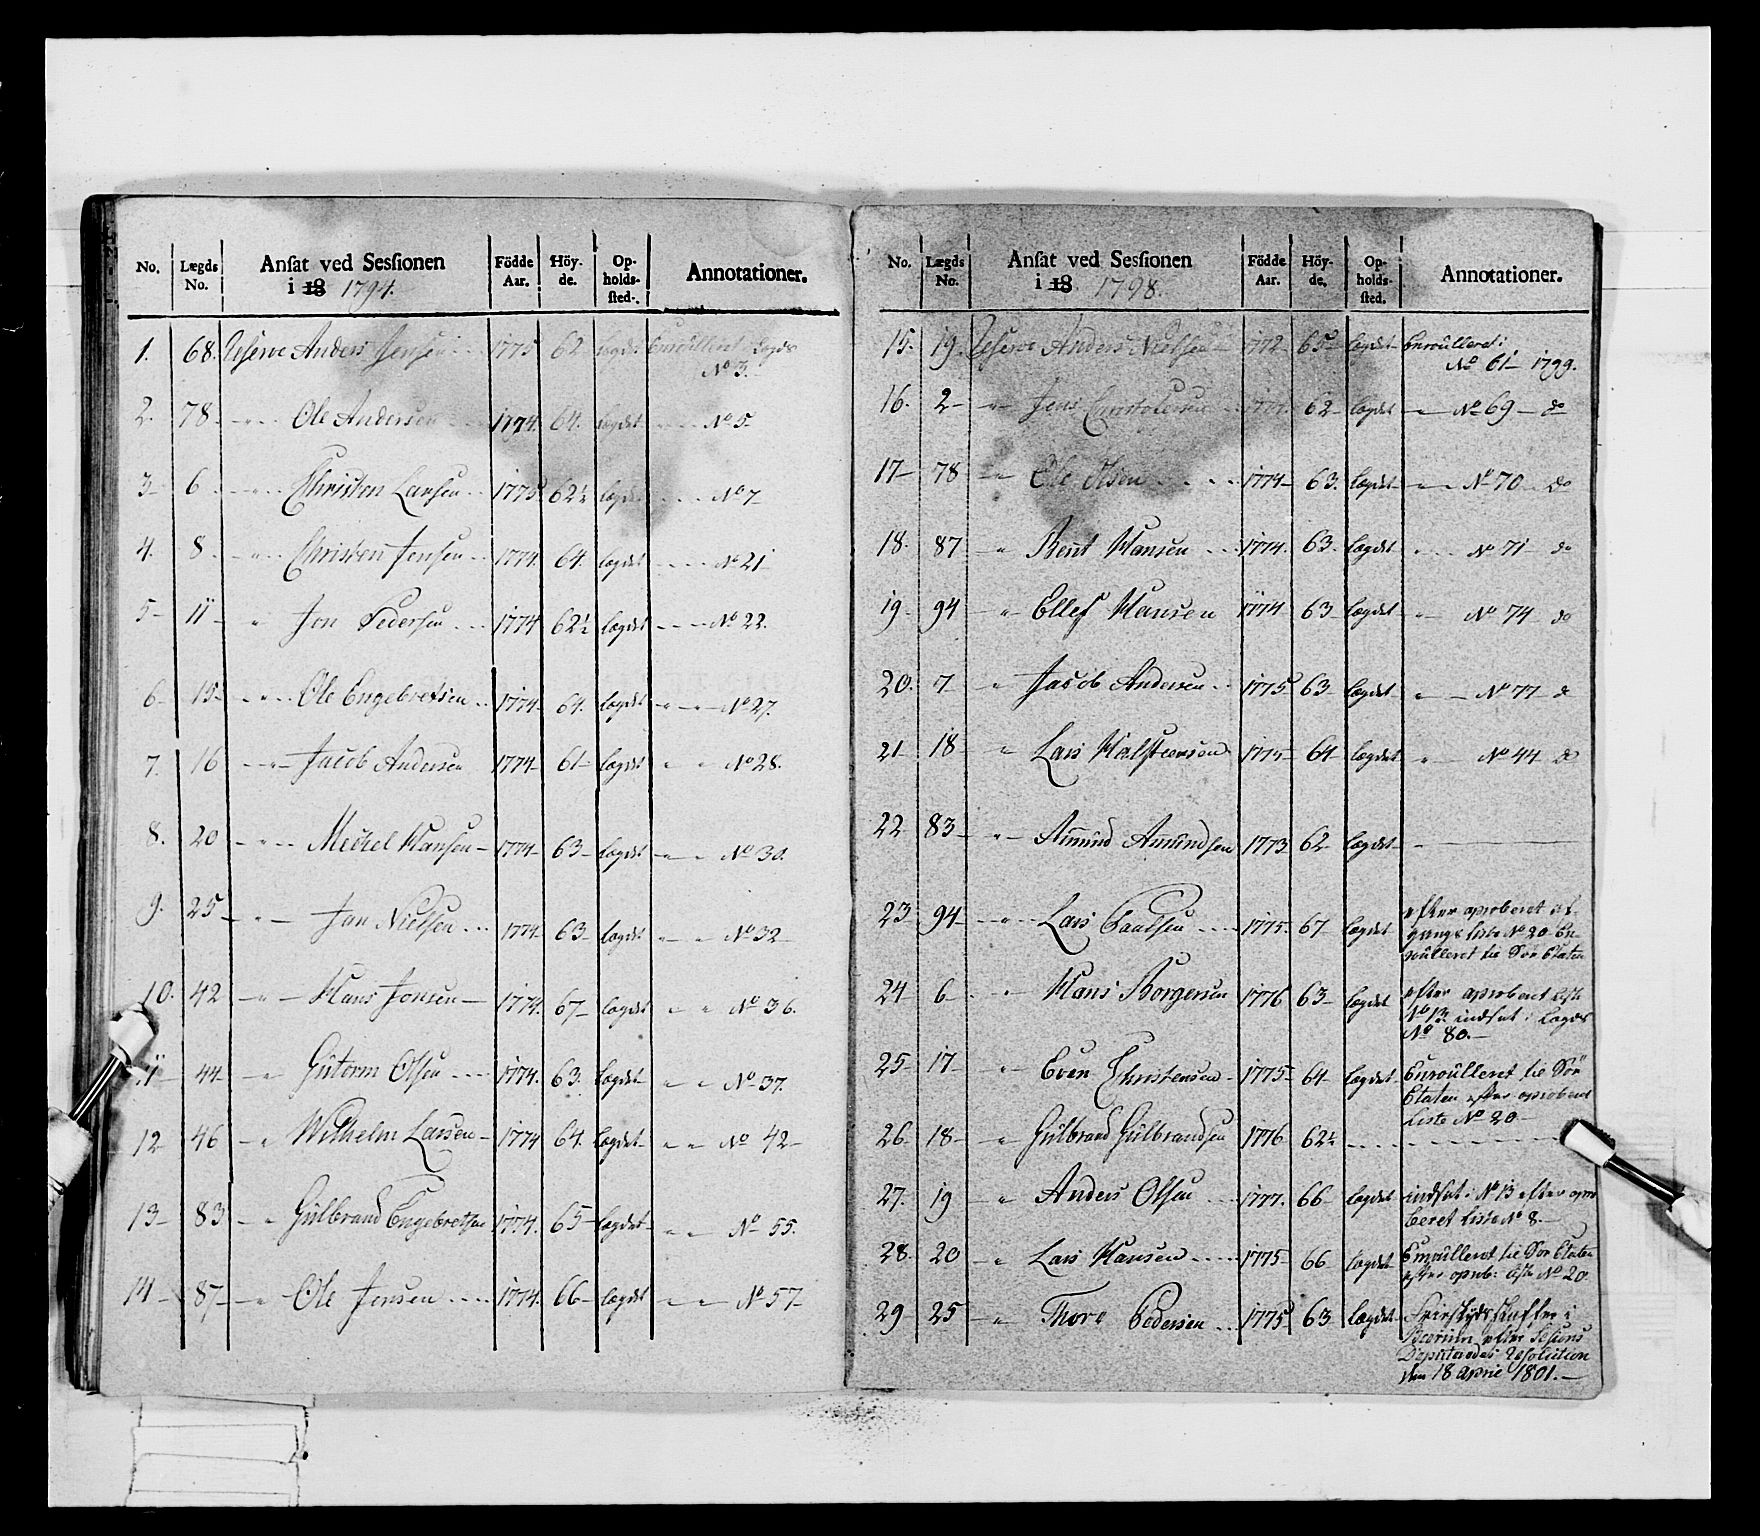 No. Lægds No. Anſat ved Sesſionen i 18 1794. Födde Aar. Höy-de. Op-holds-ſted. Annotationer.
1. 68. Reserve Anders Jensen 1775 62 Lægdet Enroulleret i Lægds No 3.
2. 78 " Ole Andersen 1774. 64. Lægdet " No 5
3 6 " Christen Larsen 1775 62½ lægdet No 7
4. 8 " Christen Jensen 1774. 64. lægdet No 21
5 11 " Jon Pedersen 1774 62½ lægdet No 22.
6 15 " Ole Engebretsen 1774 64. lægdet " No 27.
7. 16 " Jacob Andersen 1774 61 lægdet " No 28.
8. 20 " Mickel Hansen 1774 63 lægdet " No 30.
9. 25 " Jan Nielsen 1774 63 lægdet " No 32
10. 42 " Hans Jonsen 1774. 67 lægdet " " No 36.
11 44 " Gutorm Olsen 1774. 63. lægdet " " No 37.
12 46 " Wilhelm Larsen 1774 64. lægdet " " No 42
13 83 " Gulbrand Engebretsen 1774. 65 lægdet " " No 55.
14 87 " Ole Jensen 1774. 66 lægdet " " No 57
No. Lægds No. Anſat ved Sesſionen i 18 1798. Födde Aar. Höy-de. Op-holds-ſted. Annotationer.
15. 19. Reserve Anders Nielsen 1772 65 lægdet Enroulleret i
No 61 1799.
16. 2 " Jens Christophersen 62 lægdet " No 69 do
17 78 " Ole Olsen 1774 63. lægdet " No 70 do
18. 87 " Bent Hansen 1774. 63. lægdet " No 71 do
19. 94 " Ellef Hansen 1774 63 lægdet " No 74 do
20. 7 " Jacob Andersen 1775 63 lægdet " No 77 do
21 18 " Lars Halsteensen 1775 64 lægdet " No 44 do
22 83 " Amund Amundsen 1773 62 lægdet
23 94 " Lars Paulsen 1775 67 lægdet efter aproberet Af-
gangs liste No 20 En-
roulleret til Söe Etaten
24 6 " Hans Borgersen 1776 63 lægdet efter aproberet Liste
No 13. indsat i Lægds
No 80.
25 17 " Even Christensen 1775 64 lægdet Enroulleret til Söe
Etaten efter aproberet
Liste No 20
26. 18 " Gulbrand Gulbrandsen 1776 62½
27. 19 " Anders Olsen 1777. 66 lægdet indsat i No 13 efter apro
beret Liste No 8.
28. 20 " Lars Hansen 1775 66 lægdet Enroulleret til Söe Etaten
efter aprob: Liste No 20
29 25 " Thore Pedersen 1775 63 lægdet i
Bærum efter Sessions
Deputeredes Resolution
den 18 April 1801.